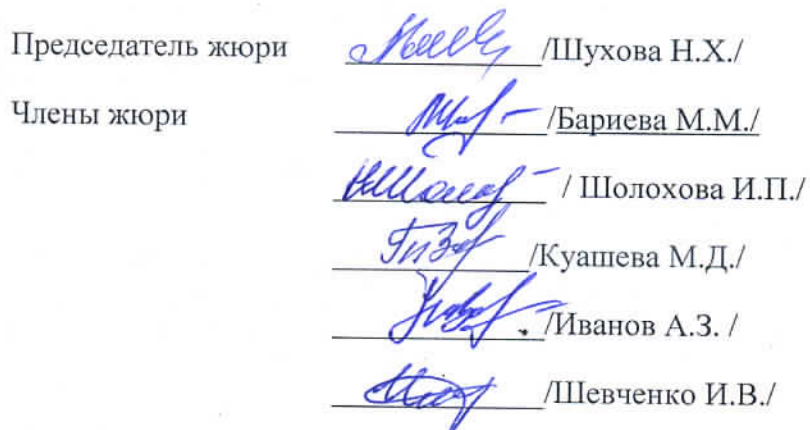 Председатель жюри /Шухова Н.Х./
Члены жюри /Бариева М.М./
/ Шолохова И.П./
/Куашева М.Д./
/Иванов А.З. /
/Шевченко И.В./